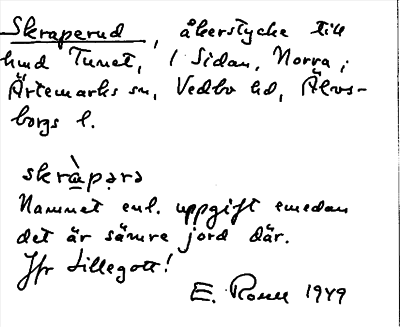 Skraperud, åkerstycke till
hmd Tunet, i Sidan, Norra,
Ärtemarks sn, Vedbo hd, Älvs-
borgs l.
skràpərə
Namnet enl. uppgift emedan
det är sämre jord där.
Jfr Lillegott!
E. 1949